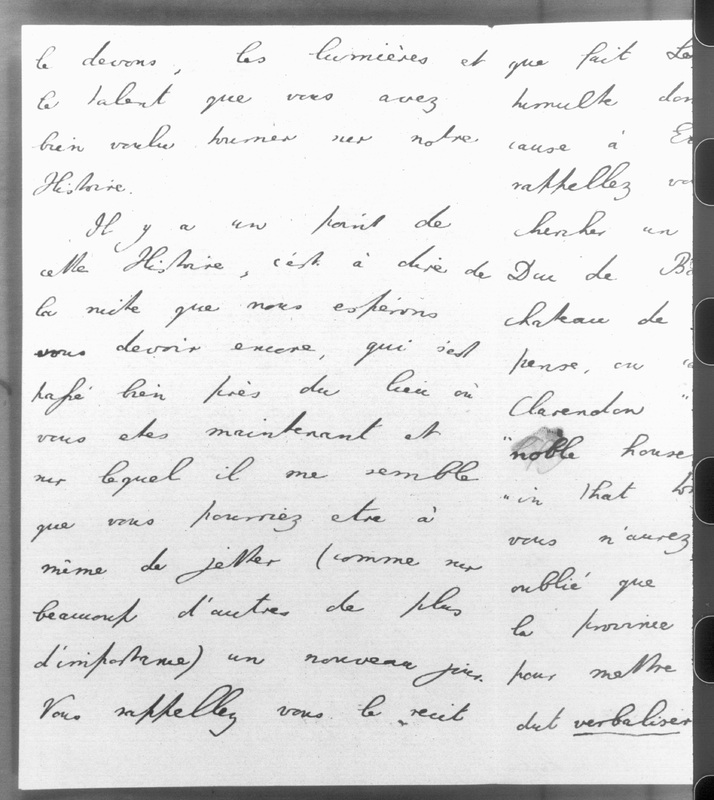 le devons, les lumières et
le talent que vous avez
bien voulu tourner sur notre
Histoire.
Il y a un point de
cette Histoire, c'est à dire de
la suite que nous espérons
vous devoir encore, qui s'est
passé bien près du lieu où
vous etes maintenant et
sur lequel il me semble
que vous pourriez etre à
même de jetter (comme sur
beaucoup d'autres de plus
d'importance) un nouveau jour.
Vous rappellez vous le recit
que fait
tumulte
cause à
rappellez
chercher un
Duc de
chateau de
pense, ou
Clarendon "
"noble house
"in that
vous n'aurez
oublié que
la province
pour mettre
dut verbaliser